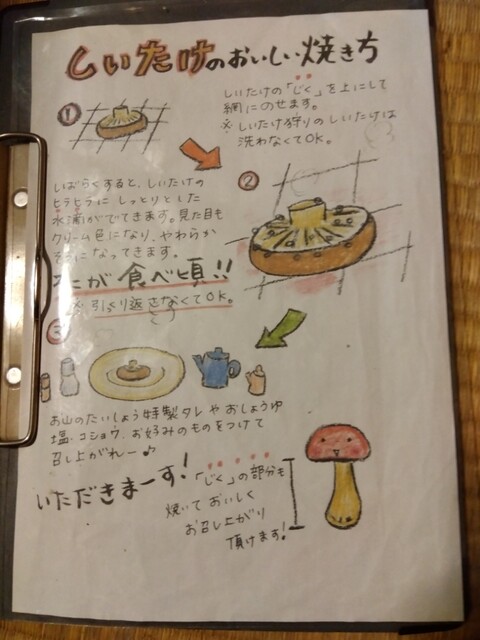 しいたけのおいしい焼き方
①
しいたけの「じく」を上にして
網にのせます。
※しいたけ狩りのしいたけは
洗わなくてOK。
②
しばらくすると、しいたけの
ヒラヒラに しっとりとした
水滴がでてきます。見た目も
クリーム色になり、やわらか
そうになってきます。
が 食べ頃!!
※ 引っくり返さなくてOK。
③
お山のたいしょう特製タレ や おしょうゆ
塩・コショウ、お好みのものをつけて
召し上がれー♪
いただきまーす!
「じく」の部分も
焼いて おいしく
お召し上がり
頂けます!